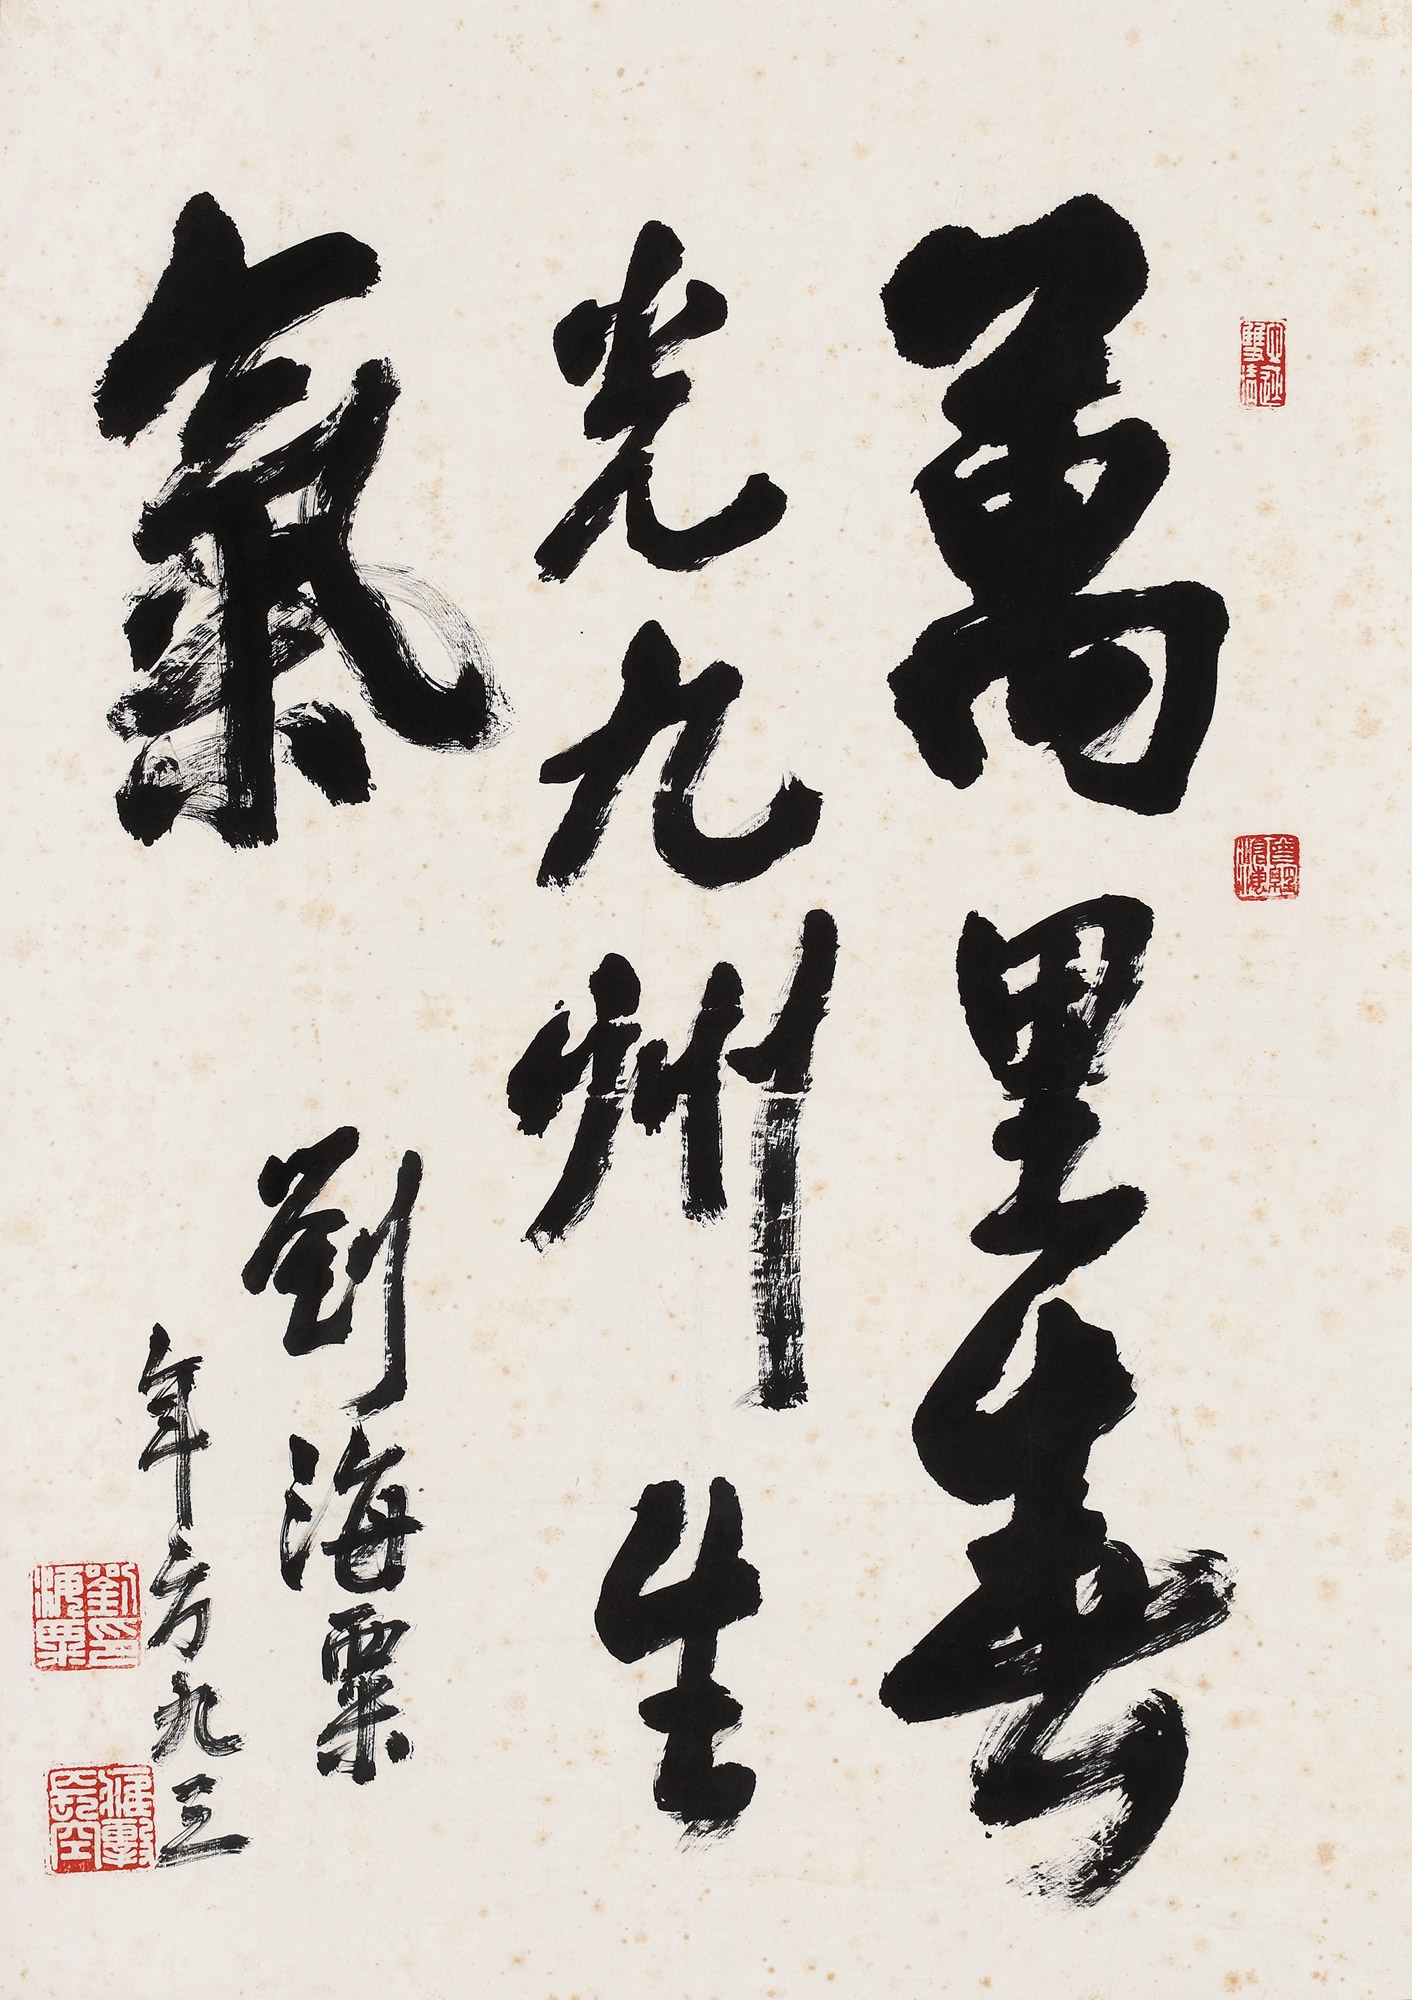 萬里春
光九州生
氣
劉海粟
年方九三
曾經滄海
劉海粟印